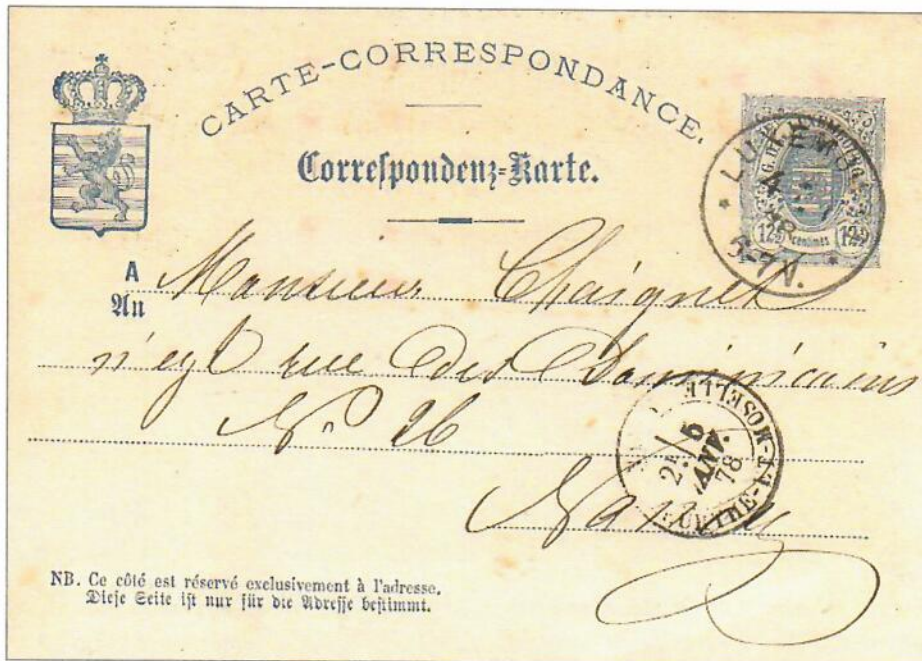 CARTE-CORRESPONDANCE.
Correſpondenz-Karte.
G. D. DE LUXEMBOURG
12½ centimes 12½
LUXEMBG
6-7 N.
A Monsieur Chaignet
An
rue des Dominicains
No 26
Nancy
MEURTHE-ET-MOSELLE
2E / 5
JANV.
78
NB. Ce côté est réservé exclusivement à l'adresse.
Dieſe Seite iſt nur für die Adreſſe beſtimmt.